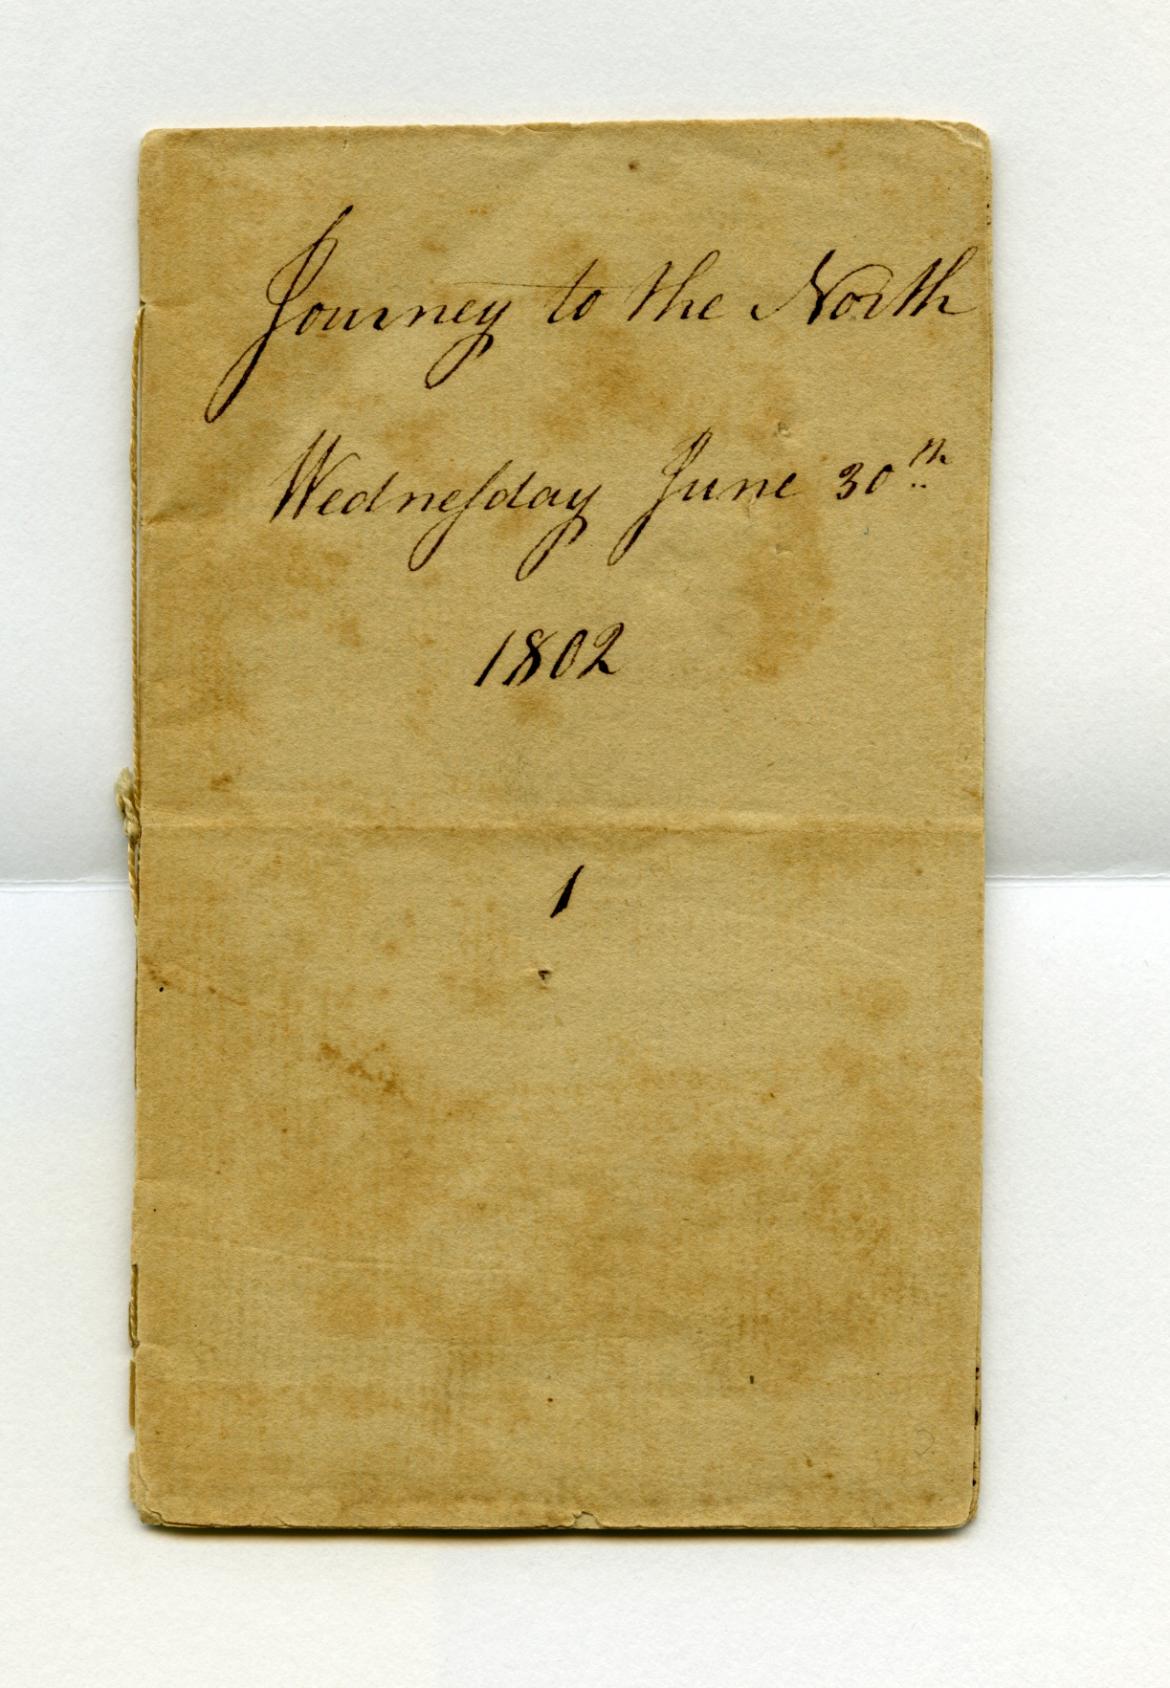 Journey to the North
Wedneſday June 30th
1802
1